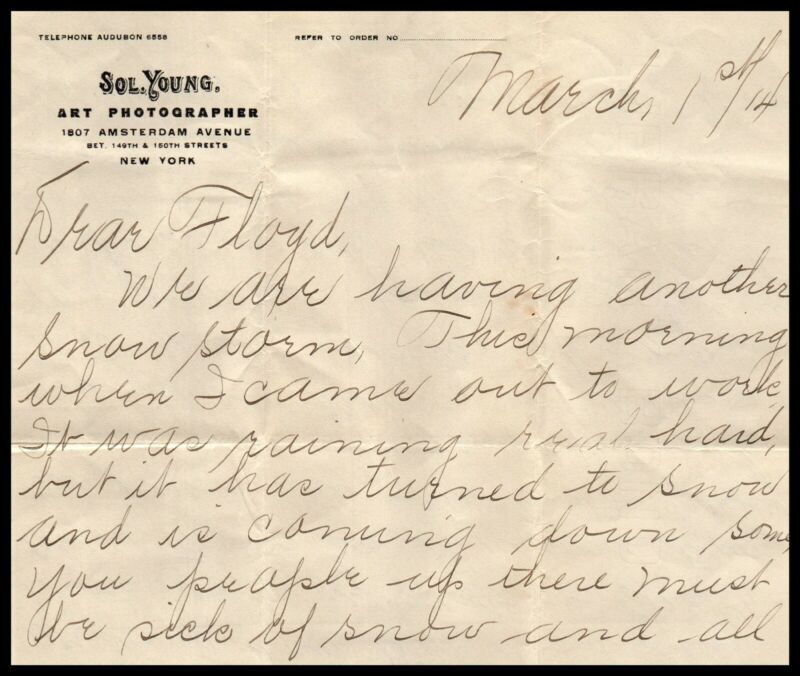 TELEPHONE AUDUBON 6558
REFER TO ORDER NO
SOL. YOUNG.
ART PHOTOGRAPHER
1807 AMSTERDAM AVENUE
BET. 149TH & 150TH STREETS
NEW YORK
March, 1st/14
Dear Floyd,
We are having another
snow storm, This morning
when I came out to work,
It was raining real hard,
but it has turned to snow
and is coming down some,
you people up there must
be sick of snow and all